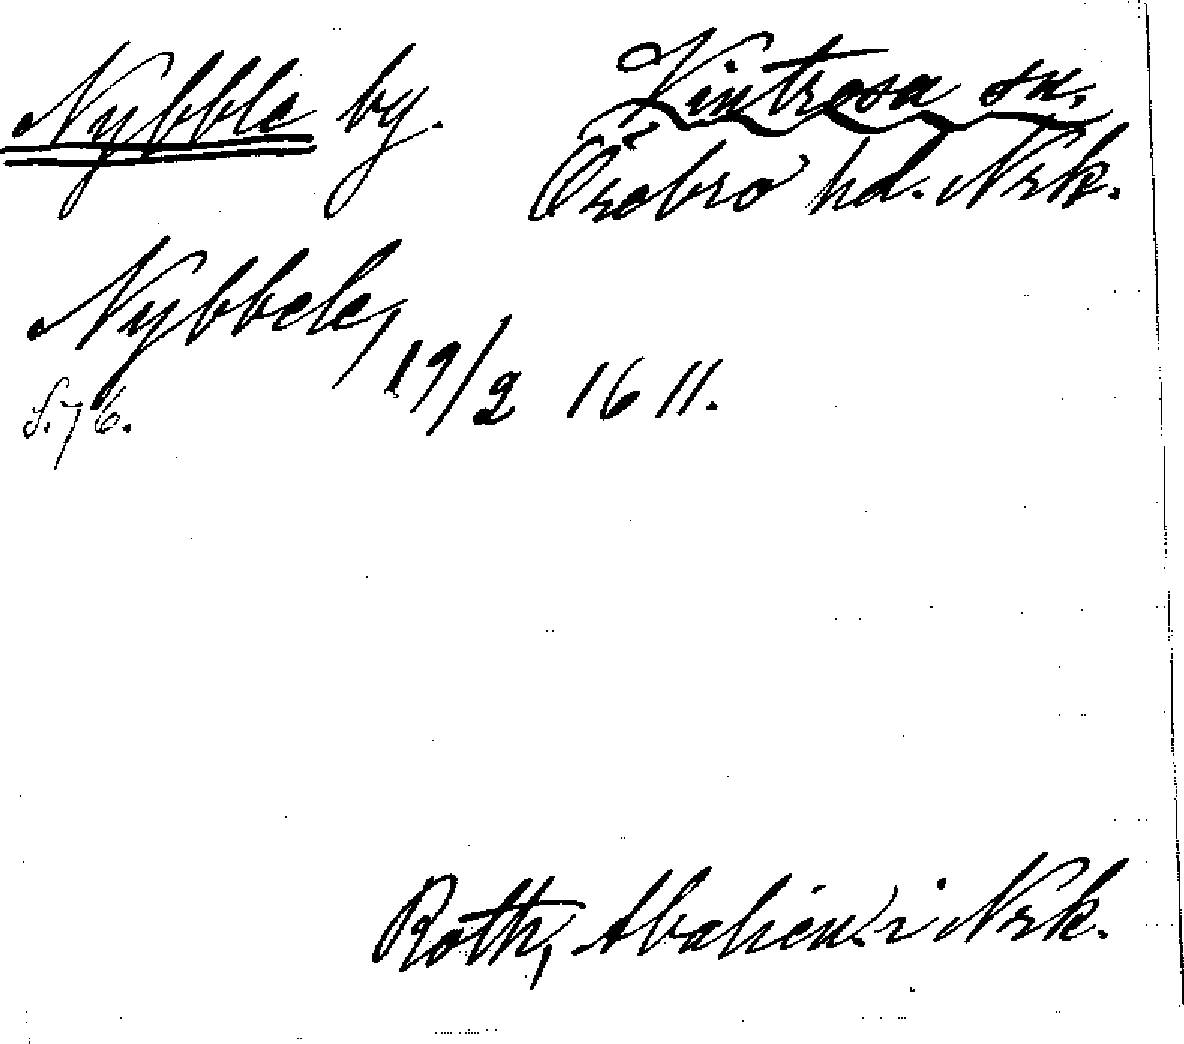 Nybble by. Kintrosa sn.
Örebro hd. Nrk.
Nybbele, 19/2 1611.
S. 76.
Roth, i Nrk.